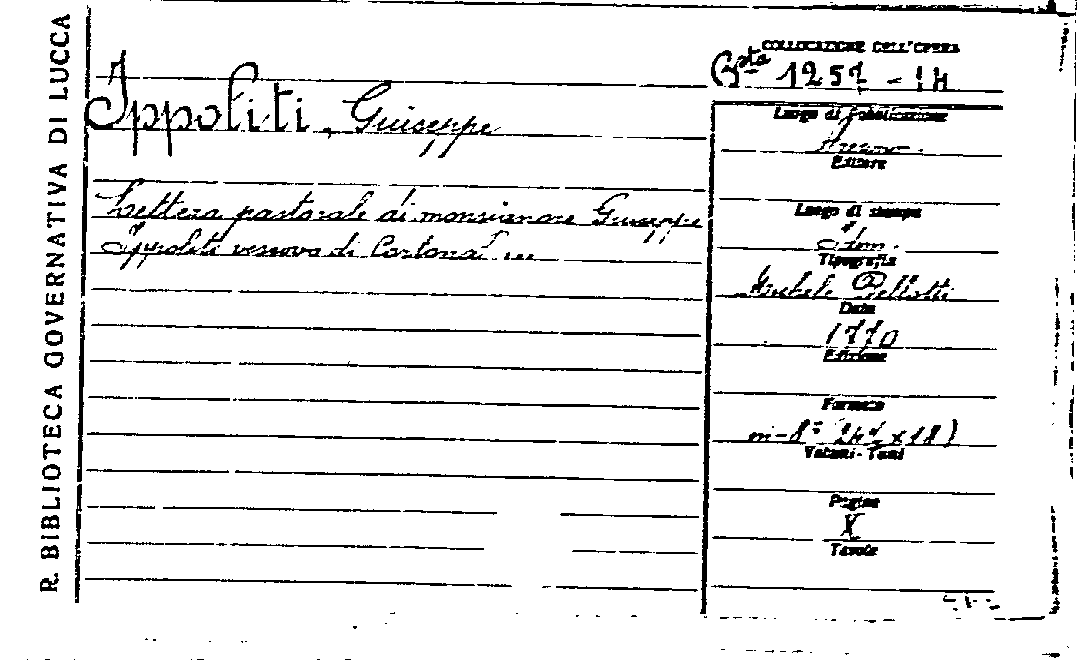 R. BIBLIOTECA GOVERNATIVA DI LUCCA
Ippoliti, Giuseppe
Lettera pastorale di monsignore Giuseppe
Ippoliti vescovo di Cortona ...
COLLOCAZIONE DELL'OPERA
Bsta 1257 - 14
Luogo di Pubblicazione
Arezzo.
Editore
Luogo di stampa
Idem.
Tipografia
Michele Bellotti
Data
1770
Edizione
Formato
in-8º 24½ x 18)
Volumi - Tomi
Pagine
X
Tavole